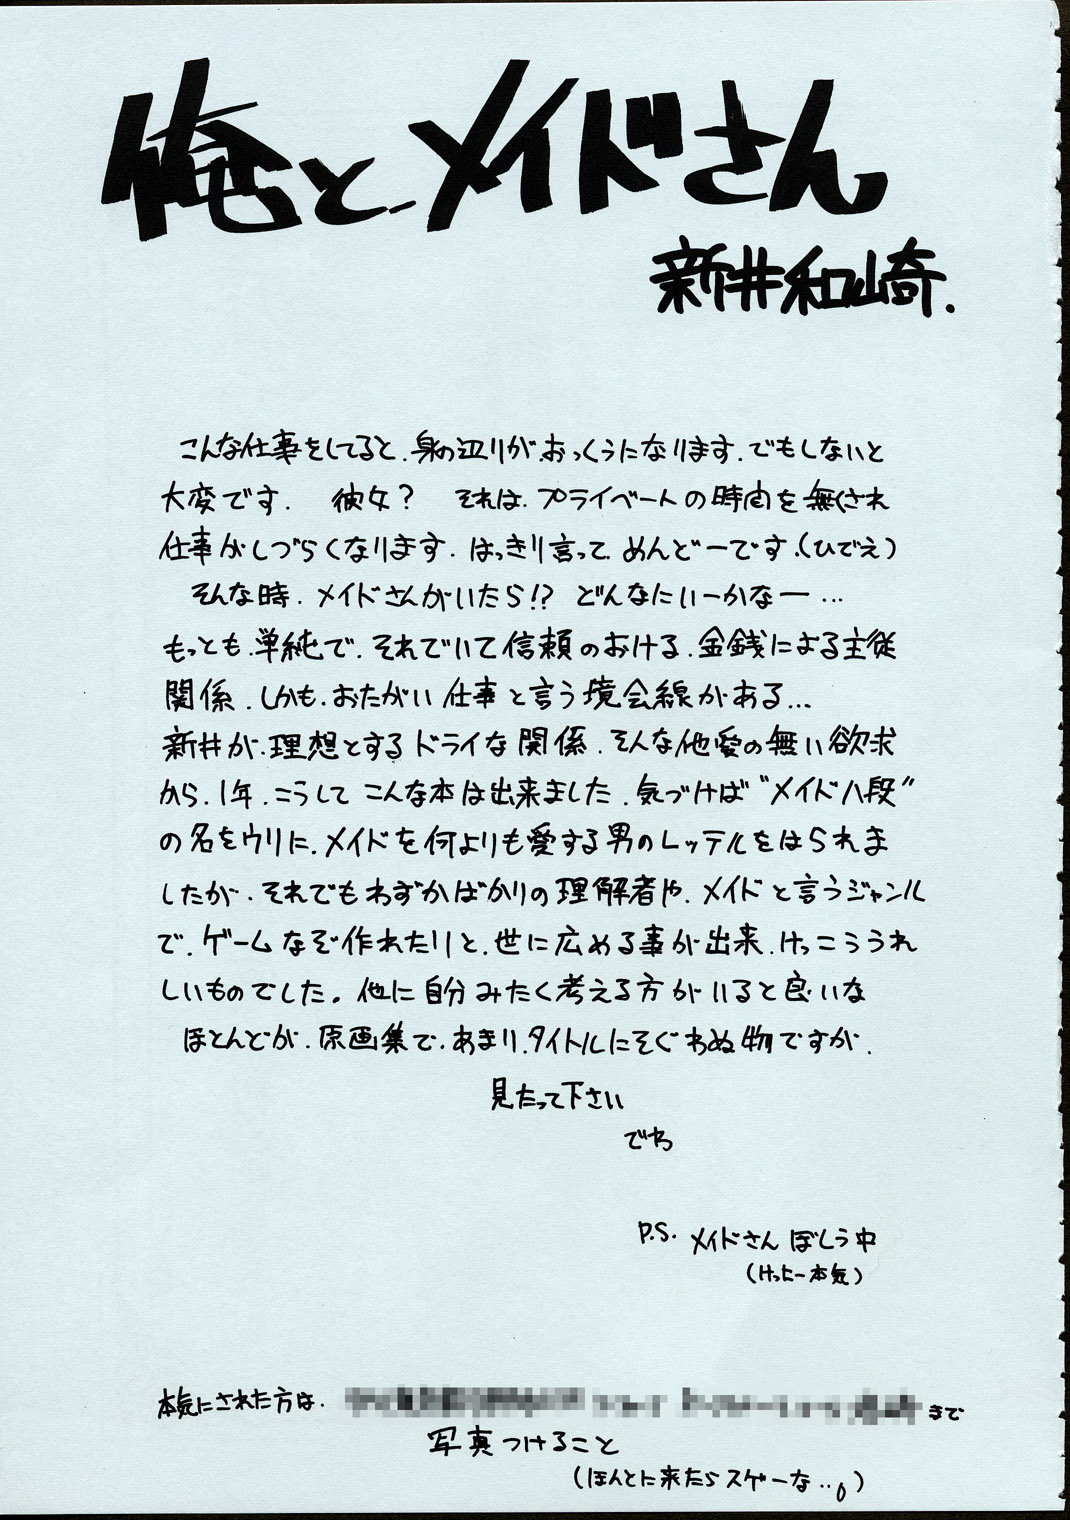 俺とメイドさん
新井和崎.
こんな仕事をしてると、身の辺りが、おっくうになります、でもしないと
大変です. 彼女? それは、プライベートの時間を無くされ
仕事がしづらくなります. はっきり言って、めんどーです.(ひでえ)
そんな時、メイドさんがいたら!? どんなにいーかなー…
もっとも、単純で、それでいて信頼のおける、金銭による主従
関係、しかも、おたがい仕事と言う境会線がある…
新井が、理想とするドライな関係、そんな他愛の無い欲求
から、1年、こうしてこんな本は出来ました、気づけば"メイド八段"
の名をウリに、メイドを何よりも愛する男のレッテルをはられま
したが、それでもわずかばかりの理解者や、メイドと言うジャンル
で、ゲームなぞ作れたりと、世に広める事が出来、けっこううれ
しいものでした。他に自分みたく考える方がいると良いな
ほとんどが、原画集で、あまり、タイトルにそぐわぬ物ですが、
見たって下さい
でわ
P.S. メイドさんぼしう中
(けっこー本気)
本気にされた方は、 まで
写真つけること
(ほんとに来たらスゲーな‥。)